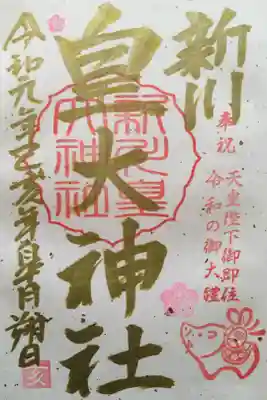 新川
奉祝
天皇陛下御即位
令和の御大禮
皇大神社
新川皇
大神社
令和元年己亥年皐月朔日